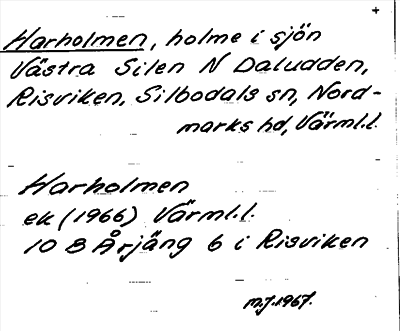 +
Harholmen, holme i sjön
Västra Silen N Daludden,
Risviken, Silbodals sn, Nord-
marks hd, Värml.l.
Harholmen
ek (1966) Värml.l.
10 B Årjäng 6 i Risviken
M.J.1967.